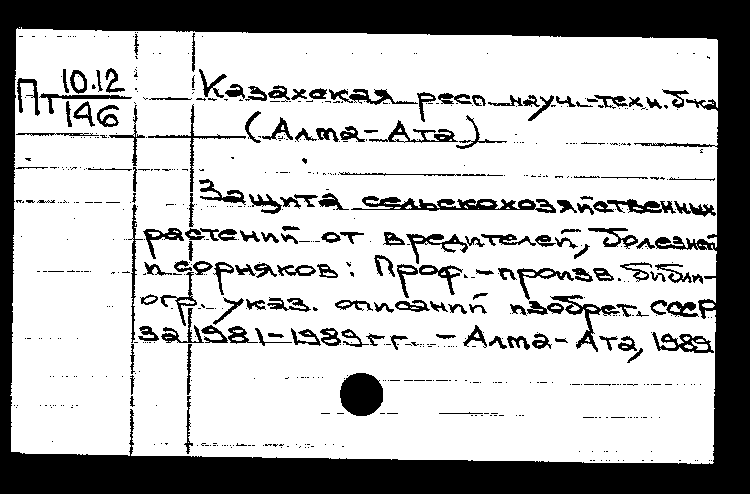 Пт 10.12
146
Казахская респ. науч.-техн. б-ка
(Алма-Ата)
Защита сельскохозяйственных
растений от вредителей, болезней
и сорняков: Проф.-произв. библи-
огр. указ. описаний изобрет. СССР
за 1981-1989 гг. - Алма-Ата, 1989